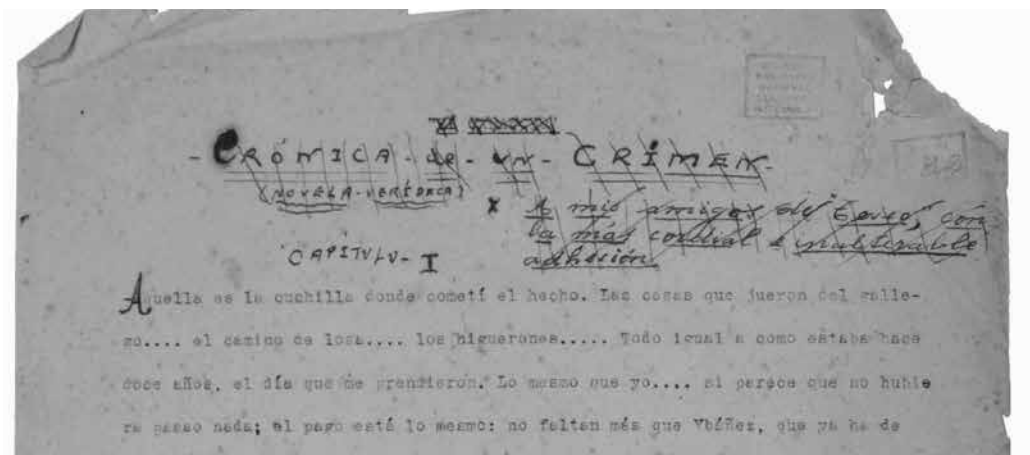 - CRÓNICA - de - un - CRÍMEN -
(NOVELA - VERÍDICA)
x A mis amigos del Esceo, con
la más cordial e inalterable
adhesión
CAPÍTULO - I
Aquella es la cuchilla donde cometí el hecho. Las casas que jueron del galle-
go.... el camino de losa.... los higuerones..... Todo igual a como estaba hace
doce años, el día que me prendieron. Lo mesmo que yo.... si parece que no hubie
ra pasao nada; el pago está lo mesmo: no faltan más que Ybáñez, que ya ha de